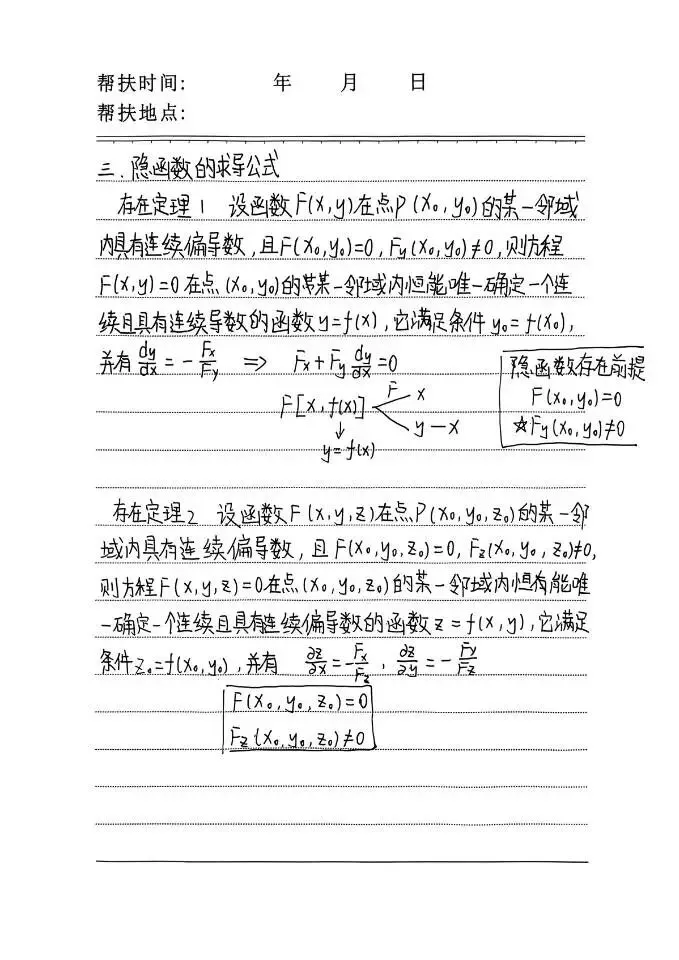 帮扶时间: 年 月 日
帮扶地点:
三、隐函数的求导公式
存在定理1 设函数F(x,y)在点P(x₀,y₀)的某一邻域
内具有连续偏导数,且F(x₀,y₀)=0,Fy(x₀,y₀)≠0,则方程
F(x,y)=0在点(x₀,y₀)的某一邻域内恒能唯一确定一个连
续且具有连续导数的函数y=f(x),它满足条件y₀=f(x₀),
并有 dy/dx = - Fx/Fy ⇒ Fx+Fy dy/dx=0
隐函数存在前提
F(x₀,y₀)=0
☆Fy(x₀,y₀)≠0
F[x,f(x)] F x
y-x
↓
y=f(x)
存在定理2 设函数F(x,y,z)在点P(x₀,y₀,z₀)的某一邻
域内具有连续偏导数,且F(x₀,y₀,z₀)=0,Fz(x₀,y₀,z₀)≠0,
则方程F(x,y,z)=0在点(x₀,y₀,z₀)的某一邻域内恒有能唯
一确定一个连续且具有连续偏导数的函数z=f(x,y),它满足
条件z₀=f(x₀,y₀),并有 ∂z/∂x=-Fx/Fz,∂z/∂y=-Fy/Fz
F(x₀,y₀,z₀)=0
Fz(x₀,y₀,z₀)≠0